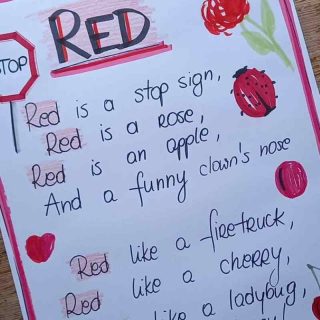 RED
STOP
Red is a stop sign,
Red is a rose,
Red is an apple,
And a funny clown's nose
Red like a firetruck,
Red like a cherry,
like a ladybug,